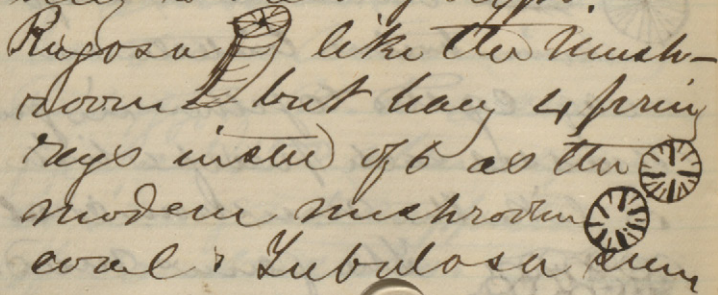 Rugosa like the Mush-
room but havg 4 prim
rays insted of 6 as the
modern mushroom
coral. Tubulosa